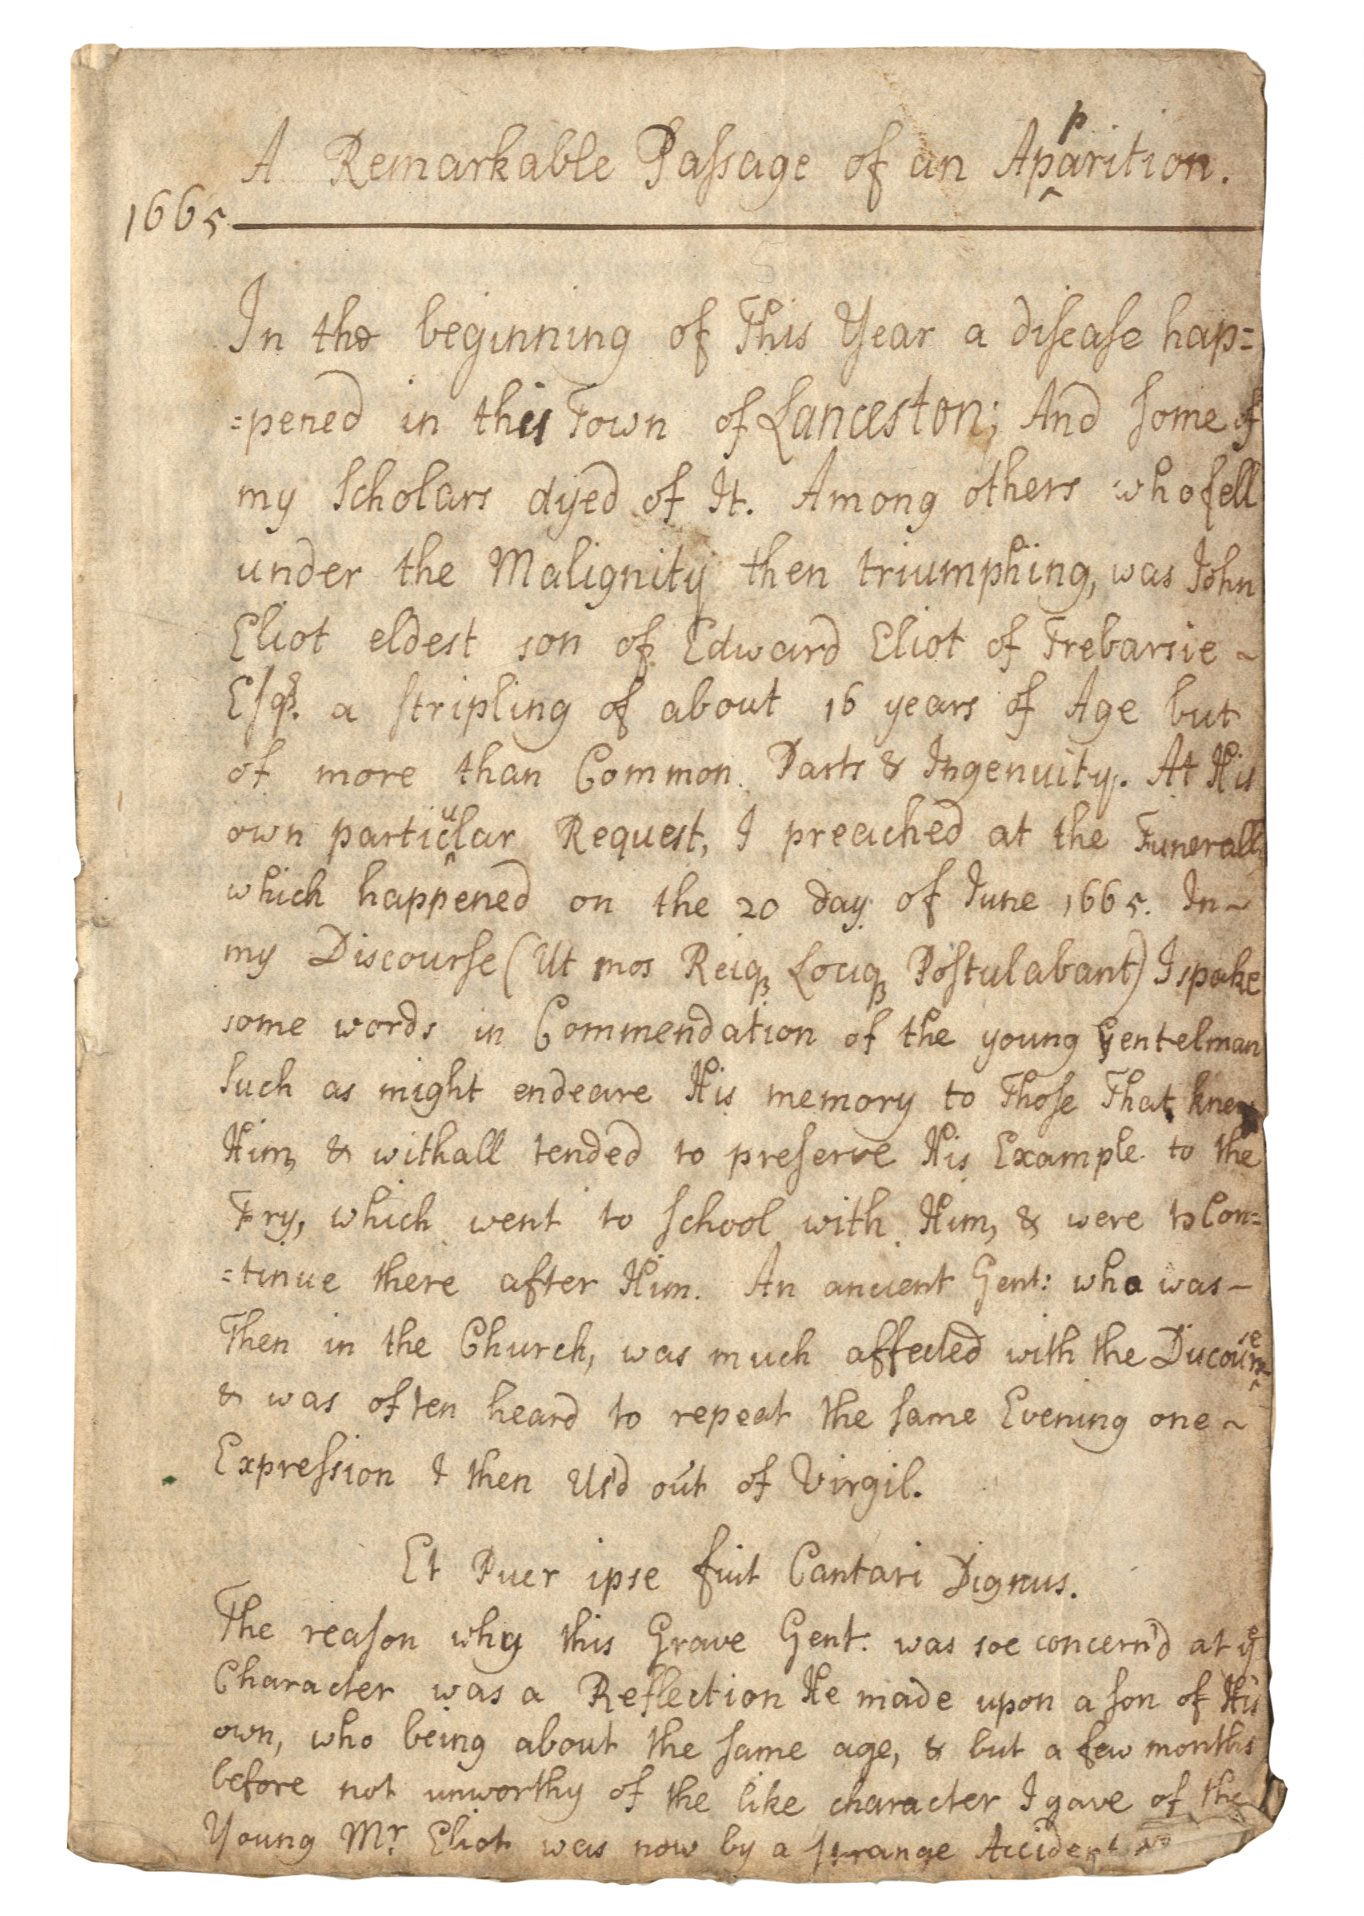 A Remarkable Passage of an Apparition.
1665
In the beginning of This Year a disease hap=
=pened in this Town of Lanceston; And some of
my Scholars dyed of It. Among others who fell
under the Malignity then triumphing, was John
Eliot eldest son of Edward Eliot of Trebarsie ~
Esqr. a stripling of about 16 years of Age but
of more than Common Parts & Ingenuity. At His
own particular Request, I preached at the Funerall
which happened on the 20 day of June 1665. In ~
my Discourse (Ut mos Reiq Lociq Postulabant) I spake
some words in Commendation of the young Gentelman
such as might endeare His memory to Those That knew
Him, & withall tended to preserve His Example to the
Fry, which went to school with Him, & were to Con=
=tinue there after Him. An ancient Gent: who was –
Then in the Church, was much affected with the Discourse
& was often heard to repeat the same Evening one ~
Expression I then Us'd out of Virgil.
Et Puer ipse fuit Cantari Dignus.
The reason why this Grave Gent: was soe concern'd at ye
Character was a Reflection He made upon a son of His
own, who being about the same age, & but a few months
before not unworthy of the like character I gave of the
Young Mr. Eliot was now by a strange Accident